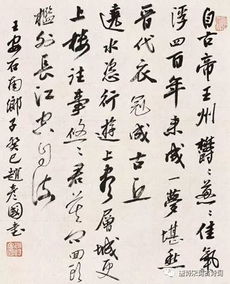 自古帝王州鬱〻蔥〻佳氣
浮四百年来成一夢堪愁
晉代衣冠成古丘
遶水恣行遊上盡層城更
上樓往事悠〻君莫問回頭
檻外長江空自流
王安石南鄉子癸巳趙彥國書
唐诗宋词古诗词